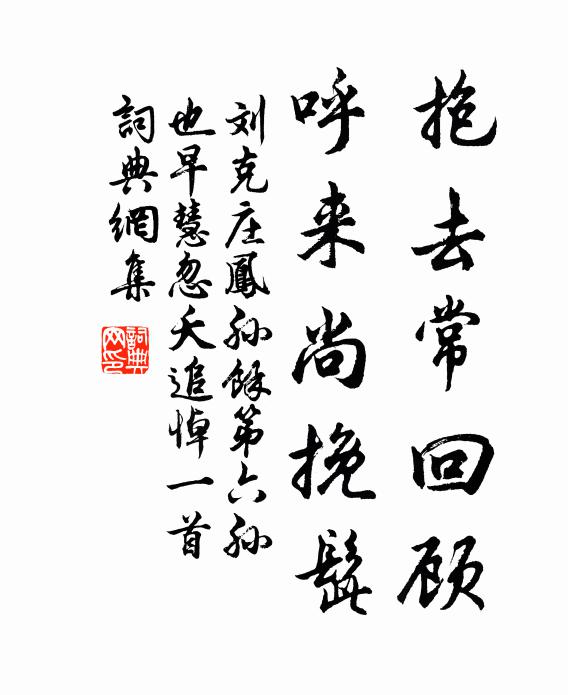 抱去常回顾
呼来尚挽髭
刘克庄鳳孙餘第六孙
也早慧忽夭追悼一首
詞典網集
詞典网印